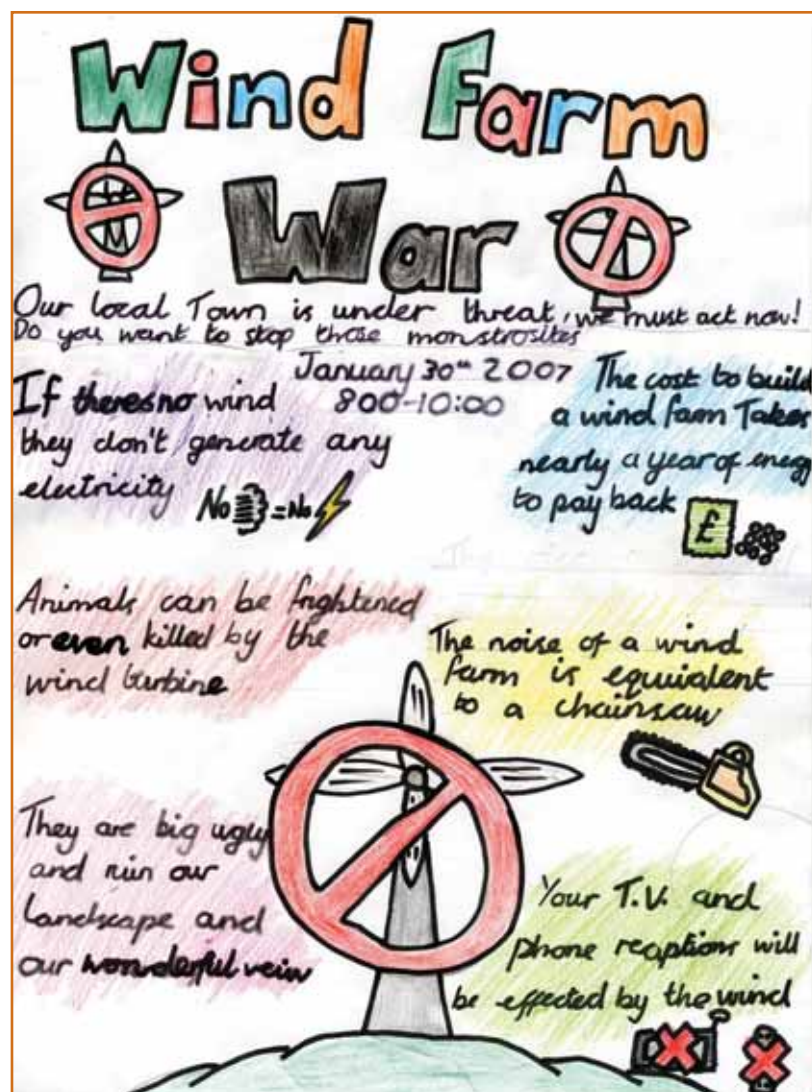 Wind Farm
War
Our local Town is under threat, we must act now!
Do you want to stop these monstrosites
January 30th 2007
800-10:00
If theres no wind
they don't generate any
electricity
No = No
The cost to build
a wind farm Takes
nearly a year of energy
to pay back
£
Animals can be frightened
or even killed by the
wind turbine
The noise of a wind
farm is equivalent
to a chainsaw
They are big ugly
and ruin our
Landscape and
our wonderful vein
Your T.V. and
phone reaptions will
be effected by the wind